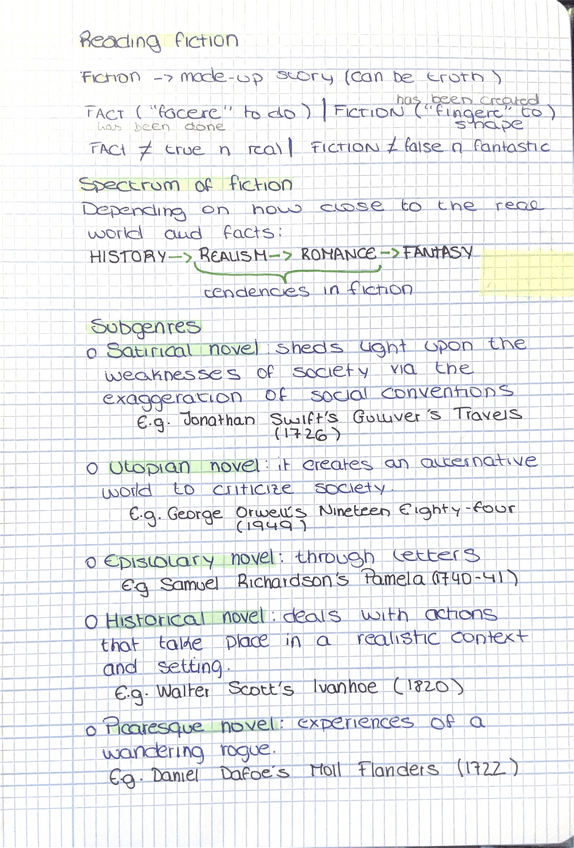 Reading fiction
Fiction -> made-up story (can be truth)
has been created
FACT ("facere" to do) | FICTION ("fingere" to)
has been done shape
FACT ≠ true n real | FICTION ≠ false n fantastic
Spectrum of fiction
Depending on how close to the real
world and facts:
HISTORY -> REALISM -> ROMANCE -> FANTASY
tendencies in fiction
Subgenres
o Satirical novel: sheds light upon the
weaknesses of society via the
exaggeration of social conventions
E.g. Jonathan Swift's Gulliver's Travels
(1726)
o Utopian novel: it creates an alternative
world to criticize society.
E.g. George Orwell's Nineteen Eighty-four
(1949)
o Epistolary novel: through letters
E.g Samuel Richardson's Pamela (1740-41)
o Historical novel: deals with actions
that take place in a realistic context
and setting.
E.g. Walter Scott's Ivanhoe (1820)
o Picaresque novel: experiences of a
wandering rogue.
E.g. Daniel Dafoe's Moll Flanders (1722)